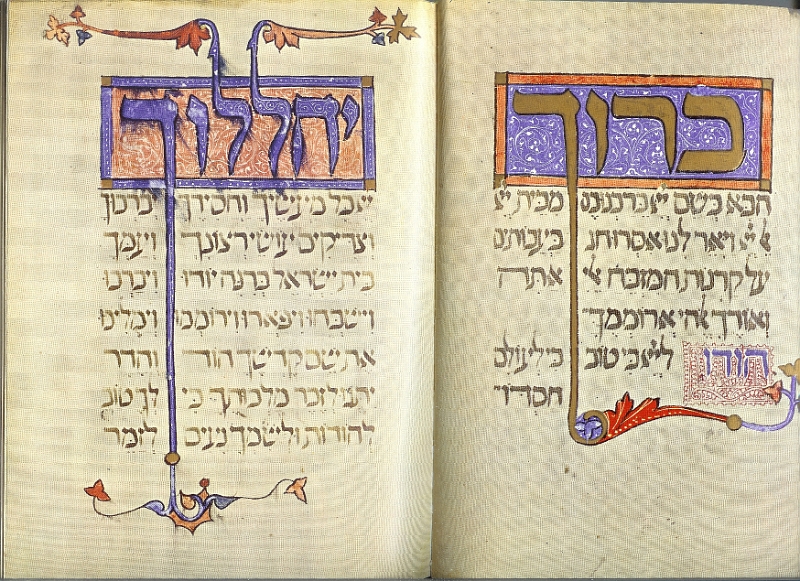 ברוך
הבא בשם יי ברכנוכם מבית יי
אל יי ויאר לנו אסרו חג בעבותים
על קרנות המזבח אלי אתה
ואודך אלהי ארוממך
הודו ליי כי טוב כי לעולם
חסדו
יהללוך
כל מעשיך וחסידיך יברכוך
וצדיקים עושי רצונך ועמך
בית ישראל ברנה יודו ויברכו
וישבחו ויפארו וירוממו וימליכו
את שם קדשך הוד והדר
יתנו לזכר מלכותך כי לך טוב
להודות ולשמך נעים לזמר